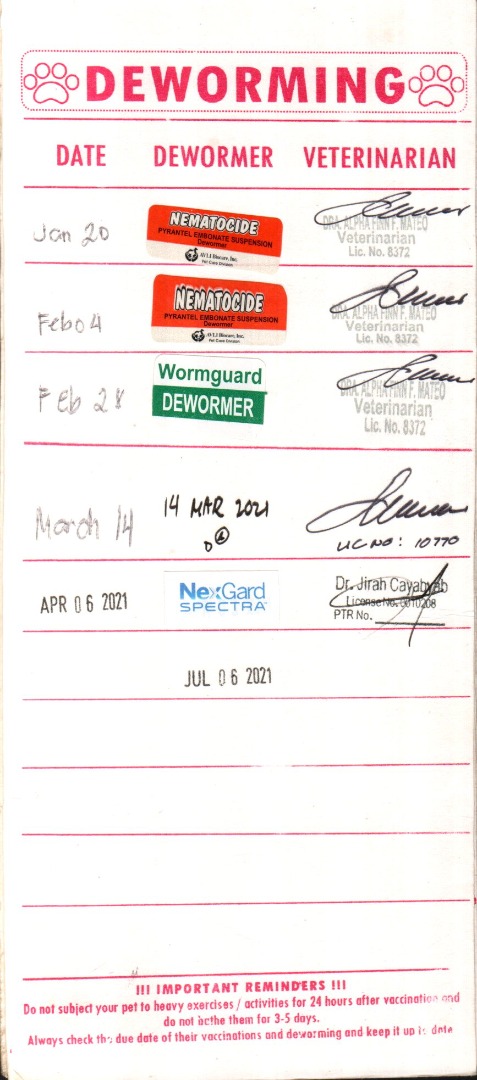 DEWORMING
DATE DEWORMER VETERINARIAN
Jan 20
NEMATOCIDE
PYRANTEL EMBONATE SUSPENSION
Dewormer
Pet Care Division
DRA. ALPHA FINN F. MATEO
Veterinarian
Lic. No. 8372
Feb 04
NEMATOCIDE
PYRANTEL EMBONATE SUSPENSION
Dewormer
Pet Care Division
DRA. ALPHA FINN F. MATEO
Veterinarian
Lic. No. 8372
Feb 28
Wormguard
DEWORMER
DRA. ALPHA FINN F. MATEO
Veterinarian
Lic. No. 8372
March 14
14 MAR 2021
LIC NO: 10770
APR 06 2021
NexGard
SPECTRA
Dr. Jirah Cayabyab
License No. 0010208
PTR No.
JUL 06 2021
!!! IMPORTANT REMINDERS !!!
Do not subject your pet to heavy exercises / activities for 24 hours after vaccination and
do not bathe them for 3-5 days.
Always check the due date of their vaccinations and deworming and keep it up to date